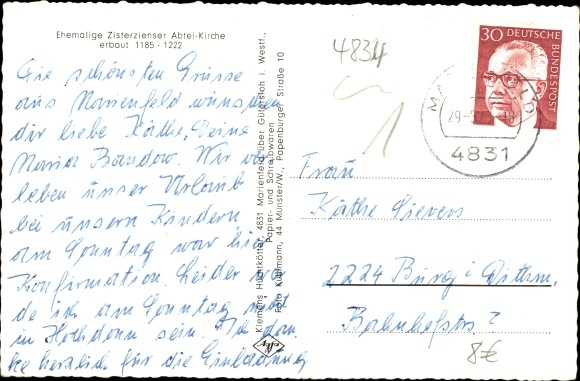 Ehemalige Zisterzienser Abtei-Kirche
erbaut 1185 - 1222
Die schönsten Grüsse
aus Marienfeld wünschen
dir liebe Käthe, Deine
Maria Bandow. Wir
leben unser Urlaub
bei unsern Kindern
am Sonntag war hier
Konfirmation. Leider
de ich am Sonntag nit
in Hochdonn sein.
ke herzlich für die Einladung
Klemens Hachkötter, 4831 Marienfeld über Gütersloh i. Westf.,
Papier- und Schreibwaren
Foto Kuhlmann, 44 Münster/W., Papenburger Straße 10
4834
1
30 DEUTSCHE
BUNDESPOST
4831
Frau
Käthe Sievers
2224 Burg i Dithm.
Bahnhofstr. 2
8€